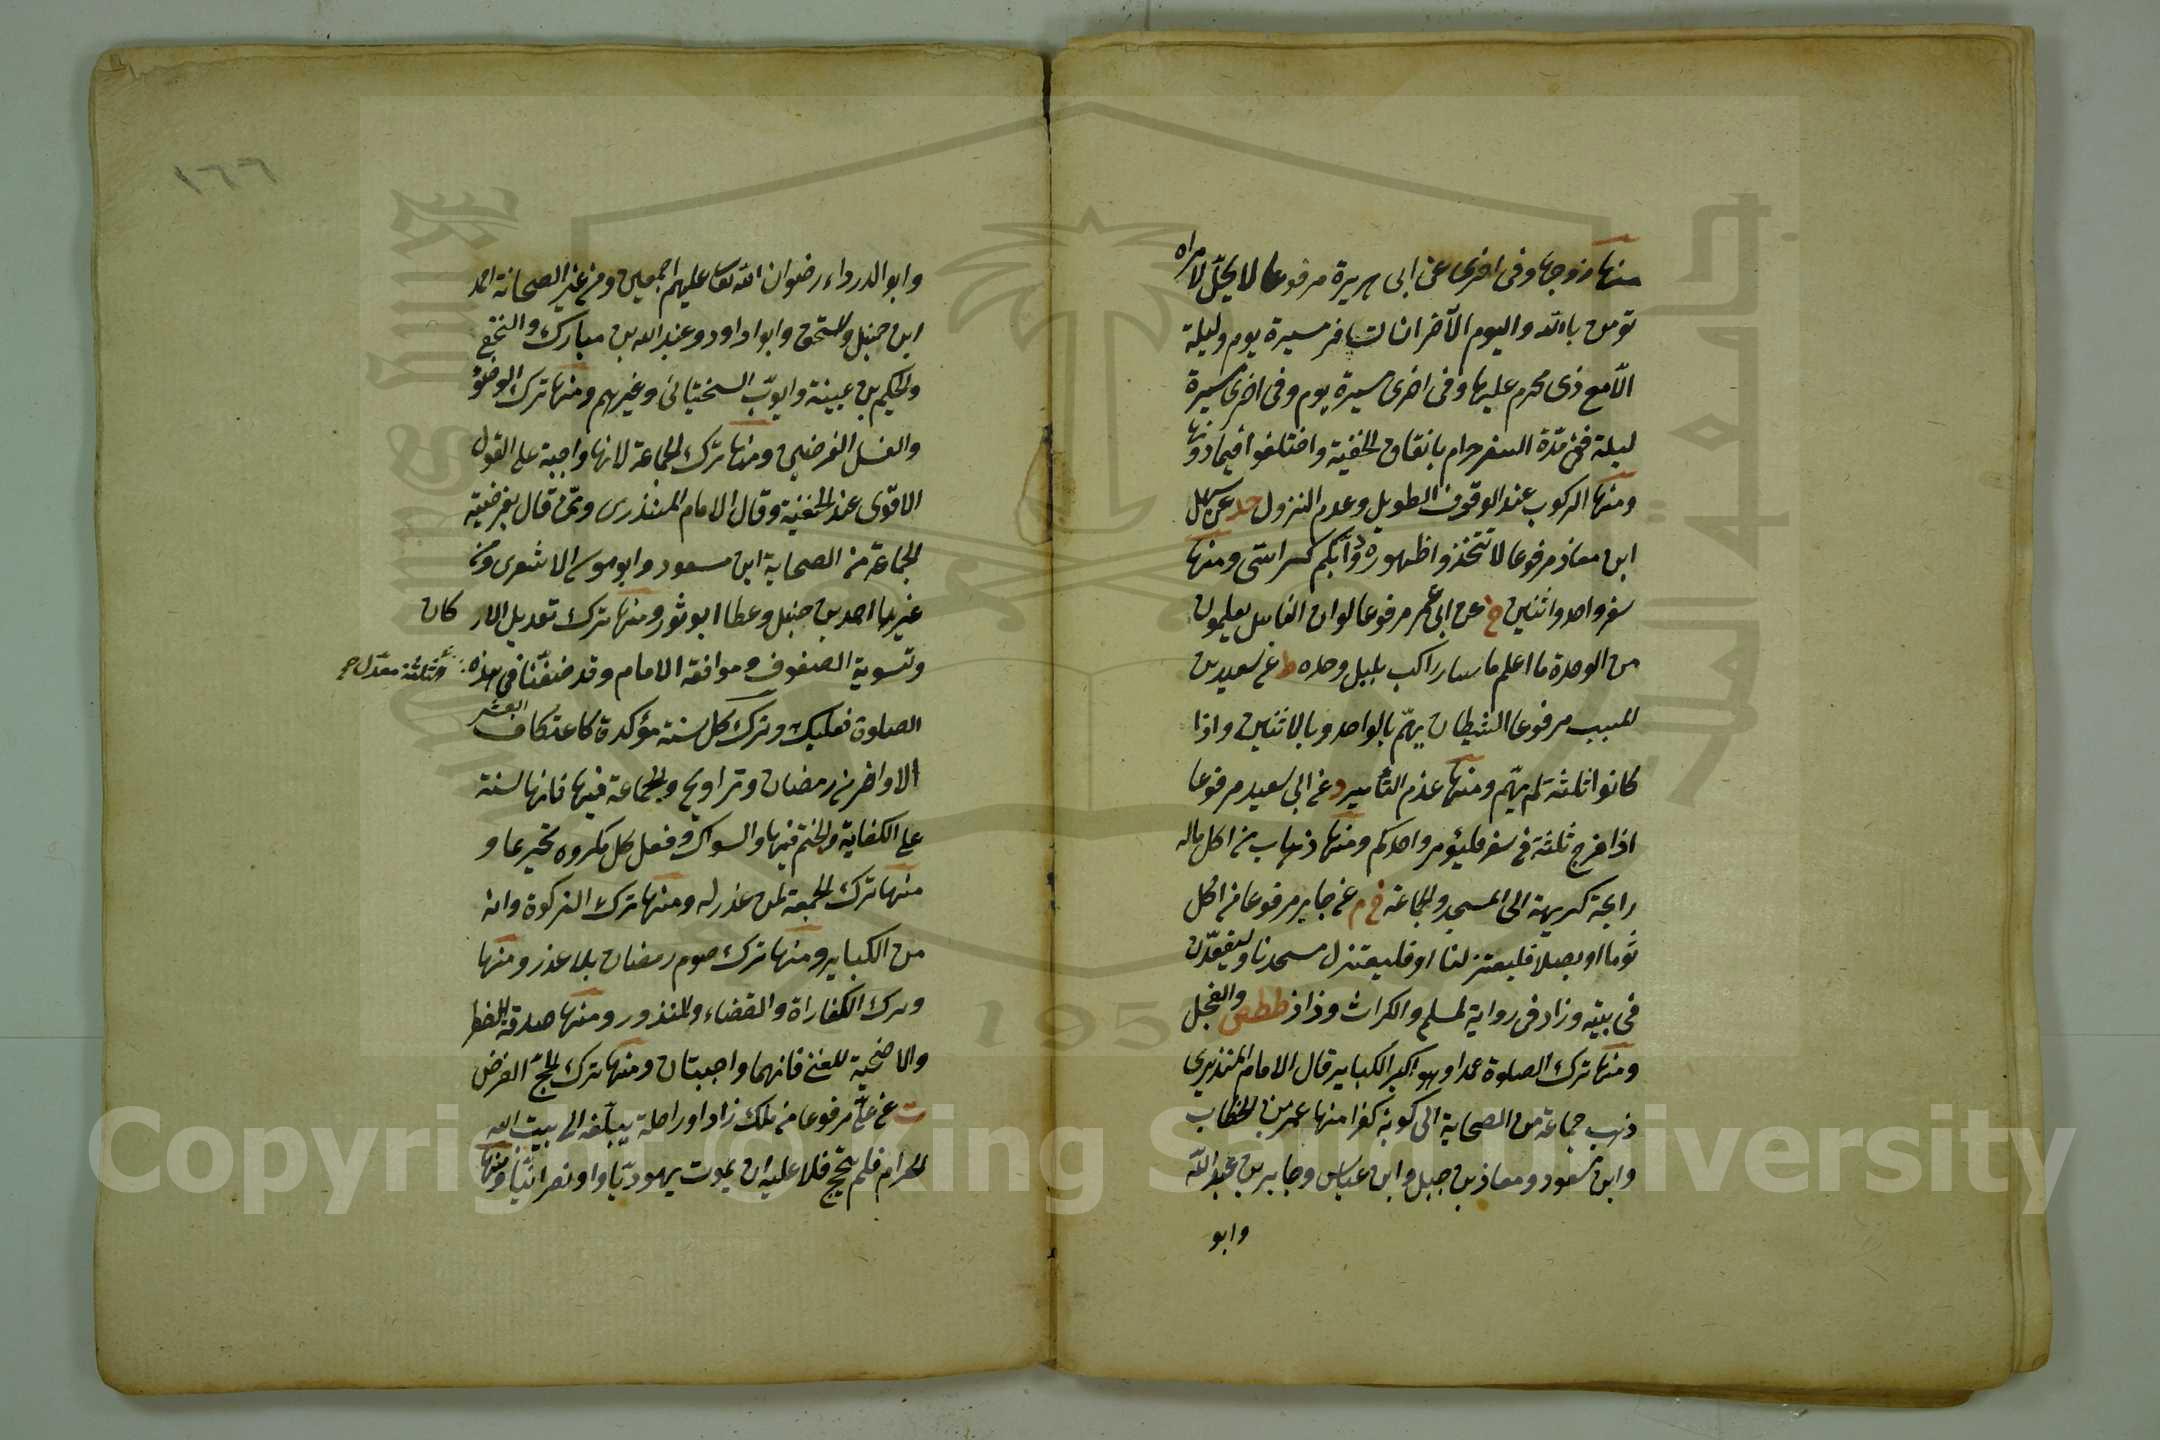 منها زوجها وفى اخرى عن ابى هريرة مرفوعا لا يحل لامراه
تؤمن بالله واليوم الآخر ان تسافر مسيرة يوم وليلة
الا مع ذى محرم عليها وفى اخرى مسيرة يوم وفى اخرى مسيرة
ليلة فمن مدة السفر حرام باتفاق الحنفية واختلفوا فيما دونها
ومنها الركوب عند الوقوف الطويل وعدم النزول حد عن سهل
ابن معاذ مرفوعا لا تتخذوا ظهور دوابكم كراسى ومنها
سفر واحد واثنين خ عن ابى عمر مرفوعا لو ان الناس يعلمون
من الوحدة ما اعلم ما سار راكب بليل وحده ط عن سعيد بن
المسيب مرفوعا الشيطان يهمّ بالواحد وبالاثنين واذا
كانوا ثلثة لم يهمّ بهم ومنها عدم التأمير د عن ابى سعيد مرفوعا
اذا خرج ثلثة فى سفر فليؤمر واحدكم ومنها ذهاب من اكل ماله
رايحة كريهة الى المسجد والجماعة خ م عن جابر مرفوعا من اكل
ثوما او بصلا فليعتزلنا او فليعتزل مسجدنا وليقعدن
فى بيته وزاد فى رواية لمسلم والكراث وزاد ططص والفجل
ومنها ترك الصلوة عمدا وهو اكبر الكباير قال الامام المنذيرى
ذهب جماعة من الصحابة الى كونه كفرا منها عمر بن الخطاب
وابن مسعود ومعاذ بن جبل وابن عباس وجابر بن عبد الله
وابو
١٦٦
وابو الدرداء رضوان الله تعا عليهم اجمعين ومن غير الصحابة احمد
ابن حنبل واسحق وابو داود وعبد الله بن مبارك والنخعى
والحكيم بن عيينة وايوب السختيانى وغيرهم ومنها ترك الوضوء
والغسل الفرضين ومنها ترك الجماعة لانها واجبة على القول
الاقوى عند الحنفية وقال الامام المنذرى وممن قال بفرضية
الجماعة من الصحابة ابن مسعود وابو موسى الاشعرى ومن
غيرهما احمد بن حنبل وعطا ابو ثور ومنها ترك تعديل الار كان
وتسوية الصفوف وموافقة الامام وقد صنفنا فى هذه
الصلوة فعليك وترك كل سنة مؤكدة كاعتكاف العشر
الاواخر من رمضان وتراويح والجماعة فيها فانها سنة
على الكفاية والختم فيها والسواك وفعل كل مكروه تحريما و
منها ترك الجمعة لمن عذر له ومنها ترك الزكوة وانه
من الكباير ومنها ترك صوم رمضان بلا عذر ومنها
وترك الكفاراة والقضاء والمنذور ومنها صدقة الفطر
والاضحية للغنى فانهما واجبتان ومنها ترك الحج الفرض
ت عن على مرفوعا من ملك زادا وراحلة يبلغه الى بيت الله
الحرام فلم يحج فلا عليه ان يموت يهوديا او نصرانيا ومنها
Copyright © King Saud University
1957